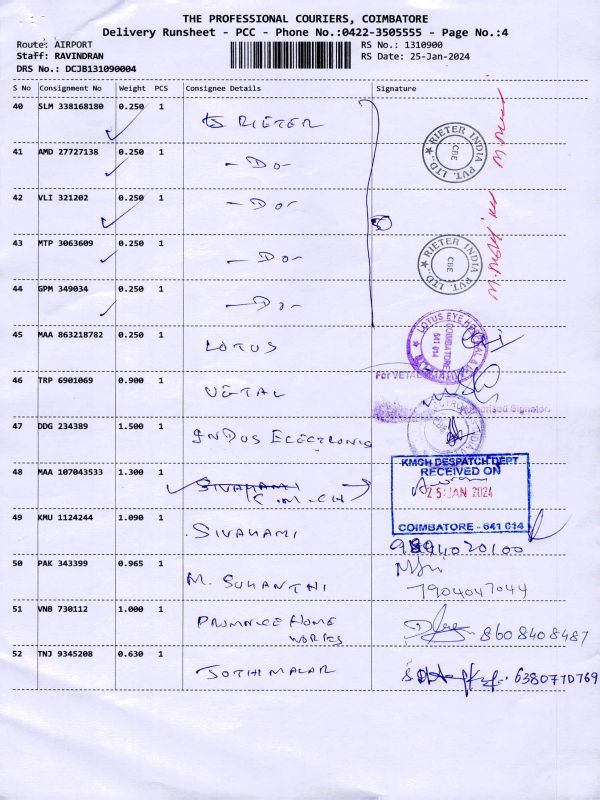 THE PROFESSIONAL COURIERS, COIMBATORE
Delivery Runsheet - PCC - Phone No.:0422-3505555 - Page No.:4
Route: AIRPORT
Staff: RAVINDRAN
DRS No.: DCJB131090004
RS No.: 1310900
RS Date: 25-Jan-2024
S No Consignment No Weight PCS Consignee Details Signature
40 SLM 338168180 0.250 1 RIETER
41 AMD 27727138 0.250 1 - Do -
42 VLI 321202 0.250 1 - Do -
43 MTP 3063609 0.250 1 - Do -
44 GPM 349034 0.250 1 - Do -
RIETER INDIA PVT. LTD. CBE
RIETER INDIA PVT. LTD. CBE
45 MAA 863218782 0.250 1 LOTUS
LOTUS EYE COIMBATORE 641 014
46 TRP 6901069 0.900 1 VETAL
For VETAL
Authorised Signatory
47 DDG 234389 1.500 1 INDUS ELECTRONIC
48 MAA 107043533 1.300 1 SIVAHAMI
K.M.CH
KMCH DESPATCH DEPT
RECEIVED ON
25 JAN 2024
COIMBATORE - 641 014
49 KMU 1124244 1.090 1 SIVAHAMI
50 PAK 343399 0.965 1 M. SUHANTHI 7904047044
51 VNB 730112 1.000 1 HOME
WORKS
8608408487
52 TNJ 9345208 0.630 1 JOTHIMALAR 6380770769